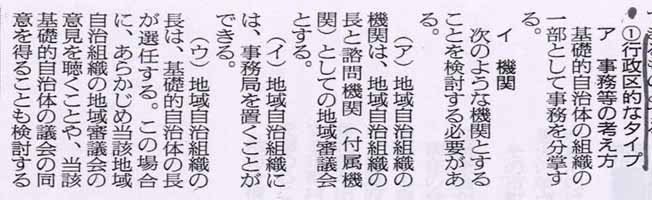 ①行政区的なタイプ
ア　事務等の考え方
基礎的自治体の組織の
一部として事務を分掌す
る。
イ　機関
次のような機関とする
ことを検討する必要があ
る。
(ア)　地域自治組織の
機関は、地域自治組織の
長と諮問機関（付属機
関）としての地域審議会
とする。
(イ)　地域自治組織に
は、事務局を置くことが
できる。
(ウ)　地域自治組織の
長は、基礎的自治体の長
が選任する。この場合
に、あらかじめ当該地域
自治組織の地域審議会の
意見を聴くことや、当該
基礎的自治体の議会の同
意を得ることも検討する